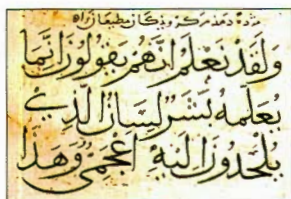 ولقد نعلم انهم يقولون انما
يعلمه بشر لسان الذي
يلحدون اليه اعجمي وهذا